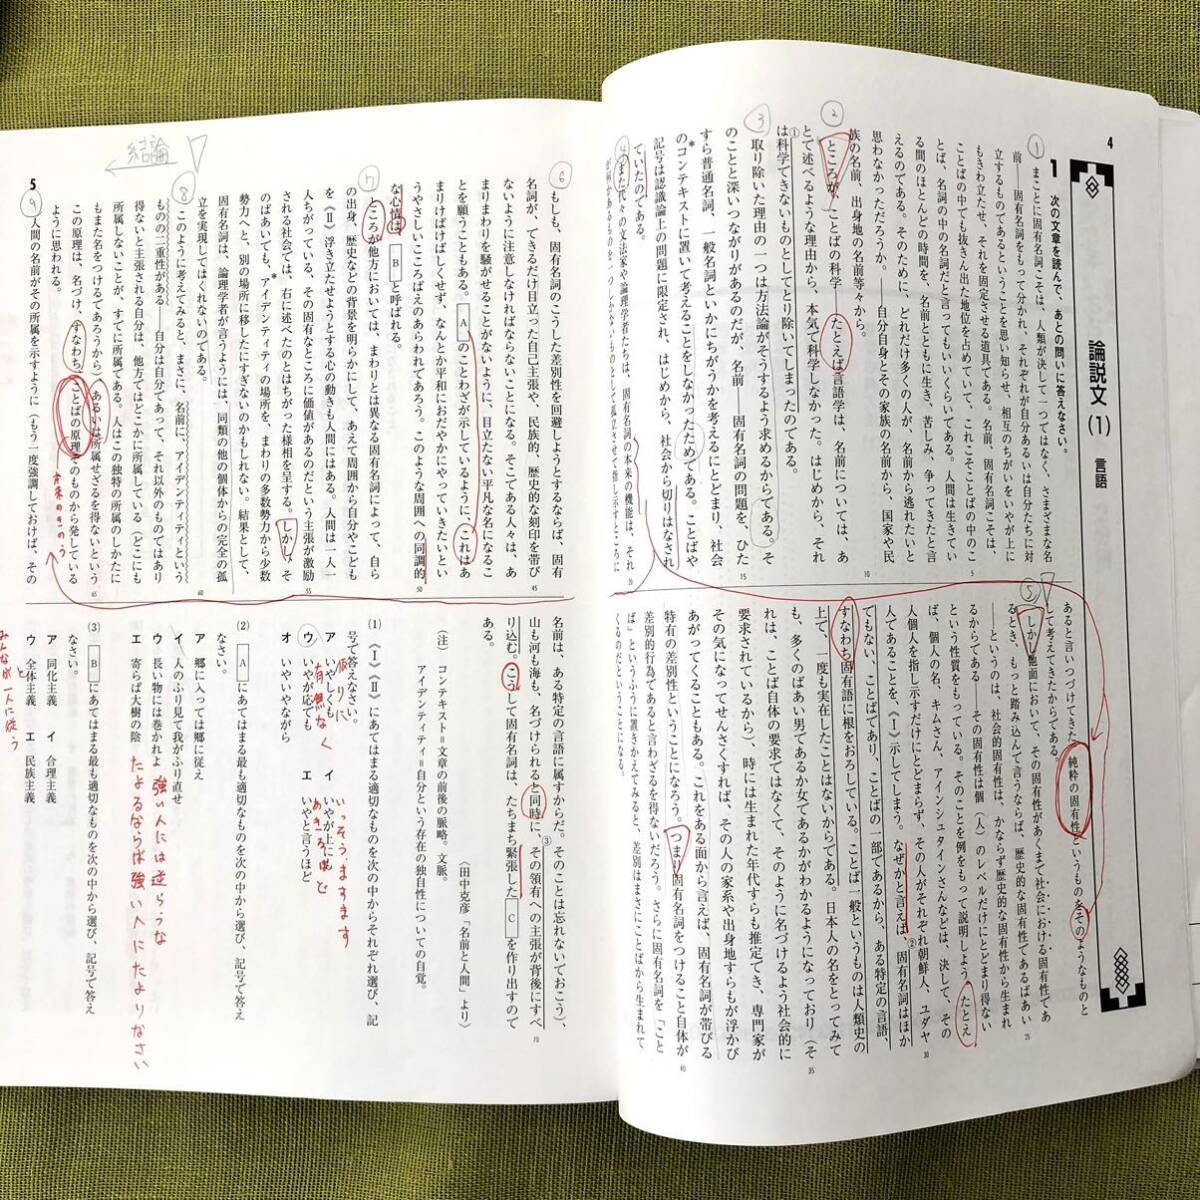 4
論説文(1) 言語
1 次の文章を読んで、あとの問いに答えなさい。
① まことに固有名詞こそは、人類が決して一つではなく、さまざまな名
前――固有名詞をもって分かれ、それぞれが自分あるいは自分たちに対
立するものであるということを思い知らせ、相互のちがいをいやが上に
もきわ立たせ、それを固定させる道具である。名前、固有名詞こそは、
ことばの中でも抜きん出た地位を占めていて、これこそことばの中のこ
とば、名詞の中の名詞だと言ってもいいくらいである。人間は生きてい
る間のほとんどの時間を、名前とともに生き、苦しみ、争ってきたと言
えるのである。そのために、どれだけ多くの人が、名前から逃れたいと
思わなかっただろうか。――自分自身とその家族の名前から、国家や民
族の名前、出身地の名前等々から。
② ところが、ことばの科学――たとえば言語学は、名前については、あ
とで述べるような理由から、本気で科学しなかった。はじめから、それ
は科学できないものとしてとり除いてしまったのである。
①
③ 取り除いた理由の一つは方法論がそうするよう求めるからである。そ
のことと深いつながりがあるのだが、名前――固有名詞の問題を、ひた
すら普通名詞、一般名詞といかにちがうかを考えるにとどまり、社会
のコンテキストに置いて考えることをしなかったためである。ことばや
記号は認識論上の問題に限定され、はじめから、社会から切りはなされ
ていたのである。
④ また代々の文法家や論理学者たちは、固有名詞の本来の機能は、それ
あると言いつづけてきた。純粋の固有性というものをそのようなものと
して考えてきたからである。
⑤ しかし他面において、その固有性があくまで社会における固有性であ
るとき、もっと踏み込んで言うならば、歴史的な固有性であるばあい
――というのは、社会的固有性は、かならず歴史的な固有性から生まれ
るからである――その固有性は個(人)のレベルだけにとどまり得ない
という性質をもっている。そのことを例をもって説明しよう。たとえ
ば、個人の名、キムさん、アインシュタインさんなどは、決して、その
人個人を指し示すだけにとどまらず、その人がそれぞれ朝鮮人、ユダヤ
人であることを、《Ⅰ》示してしまう。なぜかと言えば、固有名詞はほか
②
でもない、ことばであり、ことばの一部であるから、ある特定の言語、
すなわち固有語に根をおろしている。ことば一般というものは人類史の
上で、一度も実在したことはないからである。日本人の名をとってみて
も、多くのばあい男であるか女であるかがわかるようになっており(そ
れは、ことば自体の要求ではなくて、そのように名づけるよう社会的に
要求されているから)、時には生まれた年代すらも推定でき、専門家が
その気になってせんさくすれば、その人の家系や出身地すらも浮かび
あがってくることもある。これをある面から言えば、固有名詞が帯びる
特有の差別性ということになろう。つまり固有名詞をつけること自体が
差別的行為であると言わざるを得ないだろう。さらに固有名詞を「こと
ば」というふうに置きかえてみると、差別はまさにことばから生まれて
くるのだということになる。
5
結論
⑥ もしも、固有名詞のこうした差別性を回避しようとするならば、固有
名詞が、できるだけ目立った自己主張や、民族的、歴史的な刻印を帯び
ないように注意しなければならないことになる。そこである人々は、あ
まりまわりを騒がせることがないように、目立たない平凡な名になるこ
とを願うこともある。Aのことわざが示しているように、これはあ
まりけばけばしくせず、なんとか平和におだやかにやっていきたいとい
うやさしいこころざしによるものである。このような周囲への同調的
な心情は、Bと呼ばれる。
⑦ ところが他方においては、まわりとは異なる固有名詞によって、自ら
の出身、歴史などの背景を明らかにして、あえて周囲から自分やこども
を《Ⅱ》浮き立たせようとする心の動きも人間にはある。人間は一人一
人ちがっている、その固有なところに価値があるのだという主張が激励
される社会では、右に述べたのとはちがった様相を呈する。しかし、そ
のばあいでも、アイデンティティの場所を、まわりの多数勢力から少数
勢力へと、別の場所に移したにすぎないのかもしれない。結果として、
固有名詞は、論理学者が言うようには、同類の他の個体からの完全の孤
立を実現してはくれないのである。
⑧ このように考えてみると、まさに、名前に、アイデンティティという
ものの二重性がある――自分は自分であって、それ以外のものではあり
得ないと主張される自分は、他方ではどこかに所属している(どこにも
所属しないことが、すでに所属である。人はこの独特の所属のしかたに
もまた名をつけるであろうから)あるいは所属せざるを得ないという
この原理は、名づけ、すなわちことばの原理そのものから発している
ように思われる。
⑨ 人間の名前がその所属を示すように(もう一度強調しておけば、その
名前は、ある特定の言語に属すからだ。そのことは忘れないでおこう)、
山も河も海も、名づけられると同時に、その領有への主張が背後にすべ
③
り込む。こうして固有名詞は、たちまち緊張したCを作り出すので
ある。
〈田中克彦「名前と人間」より〉
(注) コンテキスト＝文章の前後の脈略。文脈。
アイデンティティ＝自分という存在の独自性についての自覚。
(1) 《Ⅰ》《Ⅱ》にあてはまる適切なものを次の中からそれぞれ選び、記
号で答えなさい。
ア いやしくも イ いやが上に
ウ いやが応でも エ いやと言うほど
オ いやいやながら
仮りに
有無なく
いっそう、ますます
(2) Aにあてはまる最も適切なものを次の中から選び、記号で答え
なさい。
ア 郷に入っては郷に従え
イ 人のふり見て我がふり直せ
ウ 長い物には巻かれよ 強い人には逆らうな
エ 寄らば大樹の陰 たよるならば強い人にたよりなさい
(3) Bにあてはまる最も適切なものを次の中から選び、記号で答え
なさい。
ア 同化主義 イ 合理主義
ウ 全体主義 エ 民族主義
みんなが一人に従う